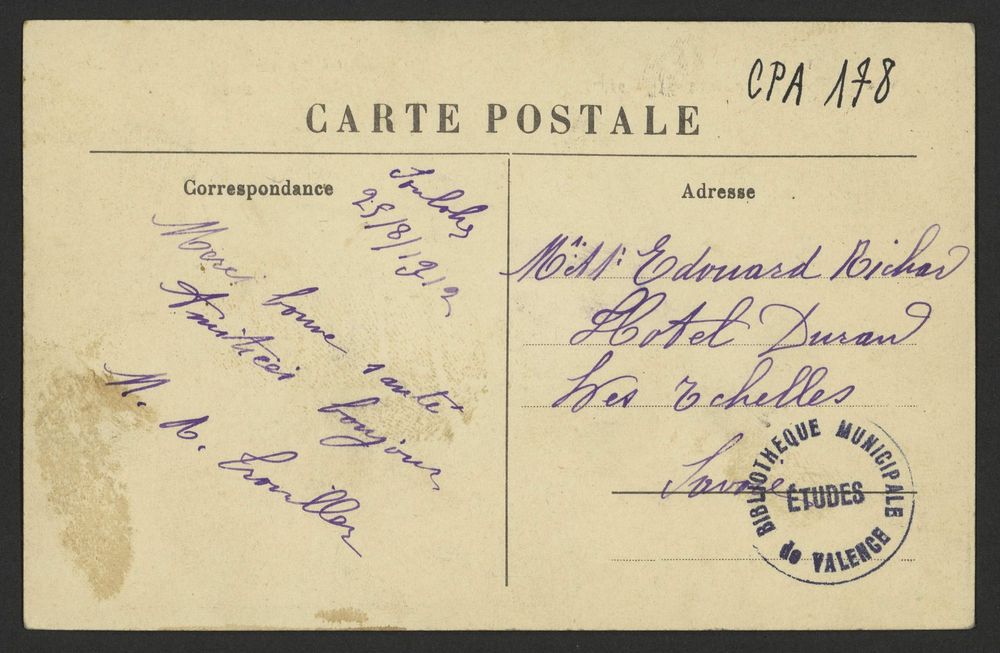 CPA 178
CARTE POSTALE
Correspondance
25/8/1912
Merci bonne santé
Amitiées bonjour
M. A.
Adresse
Edouard Richard
Hotel Durand
Les Echelles
Savoie
BIBLIOTHEQUE MUNICIPALE
ÉTUDES
de VALENCE